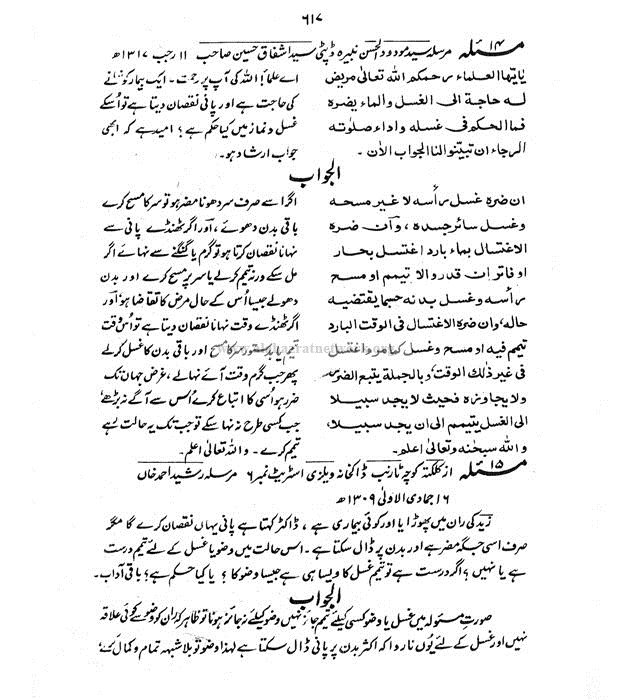 ۶۱۷
مسئلہ ۱۴ مرسلہ سید مودود الحسن نبیرہ ڈپٹی سید اشفاق حسین صاحب ۱۱ رجب ۱۳۱۷ھ
یایتھا العلماء رحمکم اللہ تعالٰی مریض
لہ حاجۃ الی الغسل والماء یضرہ
فما الحکم فی غسلہ واداء صلوتہ
الرجاء ان تبیّنوا لنا الجواب الاٰن۔
اے علماء! اللہ کی آپ پر رحمت۔ ایک بیمار کو نہانے
کی حاجت ہے اور پانی نقصان دیتا ہے تو اُسکے
غسل و نماز میں کیا حکم ہے؟ امید ہے کہ ابھی
جواب ارشاد ہو۔
الجواب
ان ضرہ غسل رأسہ لا غیر مسحہ
وغسل سائر جسدہ، وان ضرہ
الاغتسال بماء بارد اغتسل بحار
او فاتر ان قدر والا تیمم او مسح
رأسہ وغسل بدنہ حسبما یقتضیہ
حالہ، وان ضرہ الاغتسال فی الوقت البارد
تیمم فیہ او مسح وغسل کما مر واغتسل
فی غیر ذٰلک الوقت، وبالجملۃ یتبع الضرر
ولا یجاوزہ فحیث لا یجد سبیلا
الی الغسل یتیمم الی ان یجد سبیلا،
واللہ سبحٰنہ وتعالٰی اعلم۔
اگر اسے صرف سر دھونا مضر ہو تو سر کا مسح کرے
باقی بدن دھوئے، اور اگر ٹھنڈے پانی سے
نہانا نقصان کرتا ہو تو گرم یا گنگنے سے نہائے اگر
مل سکے ورنہ تیمم کرلے یا سر پر مسح کرے اور بدن
دھولے جیسا اُس کے حال مرض کا تقاضا ہو اور
اگر ٹھنڈے وقت نہانا نقصان دیتا ہے تو اُس وقت
تیمم یا بدستور سر کا مسح اور باقی بدن کا غسل کرلے
پھر جب گرم وقت آئے نہالے، غرض جہاں تک
ضرر ہو اُسی کا اتباع کرے اُس سے آگے نہ بڑھے
جب کسی طرح نہ نہا سکے تو جب تک یہ حالت رہے
تیمم کرے۔ واللہ تعالٰی اعلم۔
مسئلہ ۱۵ از کلکتہ کوچہ ٹارنب ڈاکخانہ ویلزلی اسٹریٹ نمبر ۶ مرسلہ رشید احمد خاں
۱۶ جمادی الاولٰی ۱۳۰۹ھ
زید کی ران میں پھوڑا یا اور کوئی بیماری ہے، ڈاکٹر کہتا ہے پانی یہاں نقصان کرے گا مگر
صرف اسی جگہ مضر ہے اور بدن پر ڈال سکتا ہے۔ اس حالت میں وضو یا غسل کے لئے تیمم درست
ہے یا نہیں؟ اگر درست ہے تو تیمم غسل کا ویسا ہی ہے جیسا وضو کا؟ یا کیا حکم ہے؟ باقی آداب۔
الجواب
صورت مسئولہ میں غسل یا وضو کسی کیلئے تیمم جائز نہیں وضو کیلئے نہ جائز ہونا تو ظاہر کہ ران کو وضو سے کوئی علاقہ
نہیں اور غسل کے لئے یُوں ناروا کہ اکثر بدن پر پانی ڈال سکتا ہے لہذا وضو تو بلاشبہہ تمام وکمال کرے